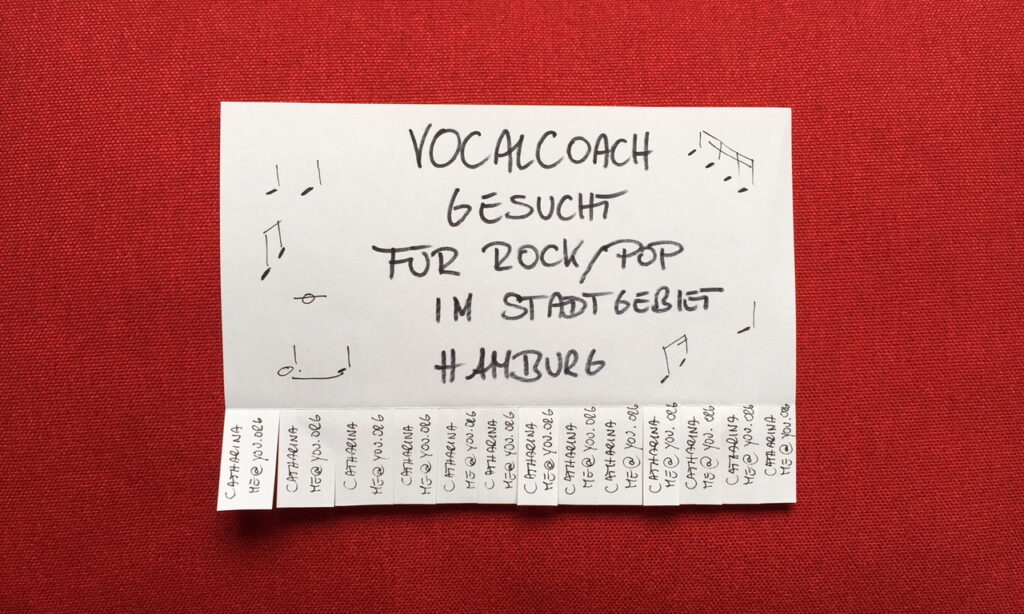 VOCALCOACH
GESUCHT
FÜR ROCK/POP
IM STADTGEBIET
HAMBURG
CATHARINA
ME@YOU.ORG
CATHARINA
ME@YOU.ORG
CATHARINA
ME@YOU.ORG
CATHARINA
ME@YOU.ORG
CATHARINA
ME@YOU.ORG
CATHARINA
ME@YOU.ORG
CATHARINA
ME@YOU.ORG
CATHARINA
ME@YOU.ORG
CATHARINA
ME@YOU.ORG
CATHARINA
ME@YOU.ORG
CATHARINA
ME@YOU.ORG
CATHARINA
ME@YOU.ORG
CATHARINA
ME@YOU.ORG